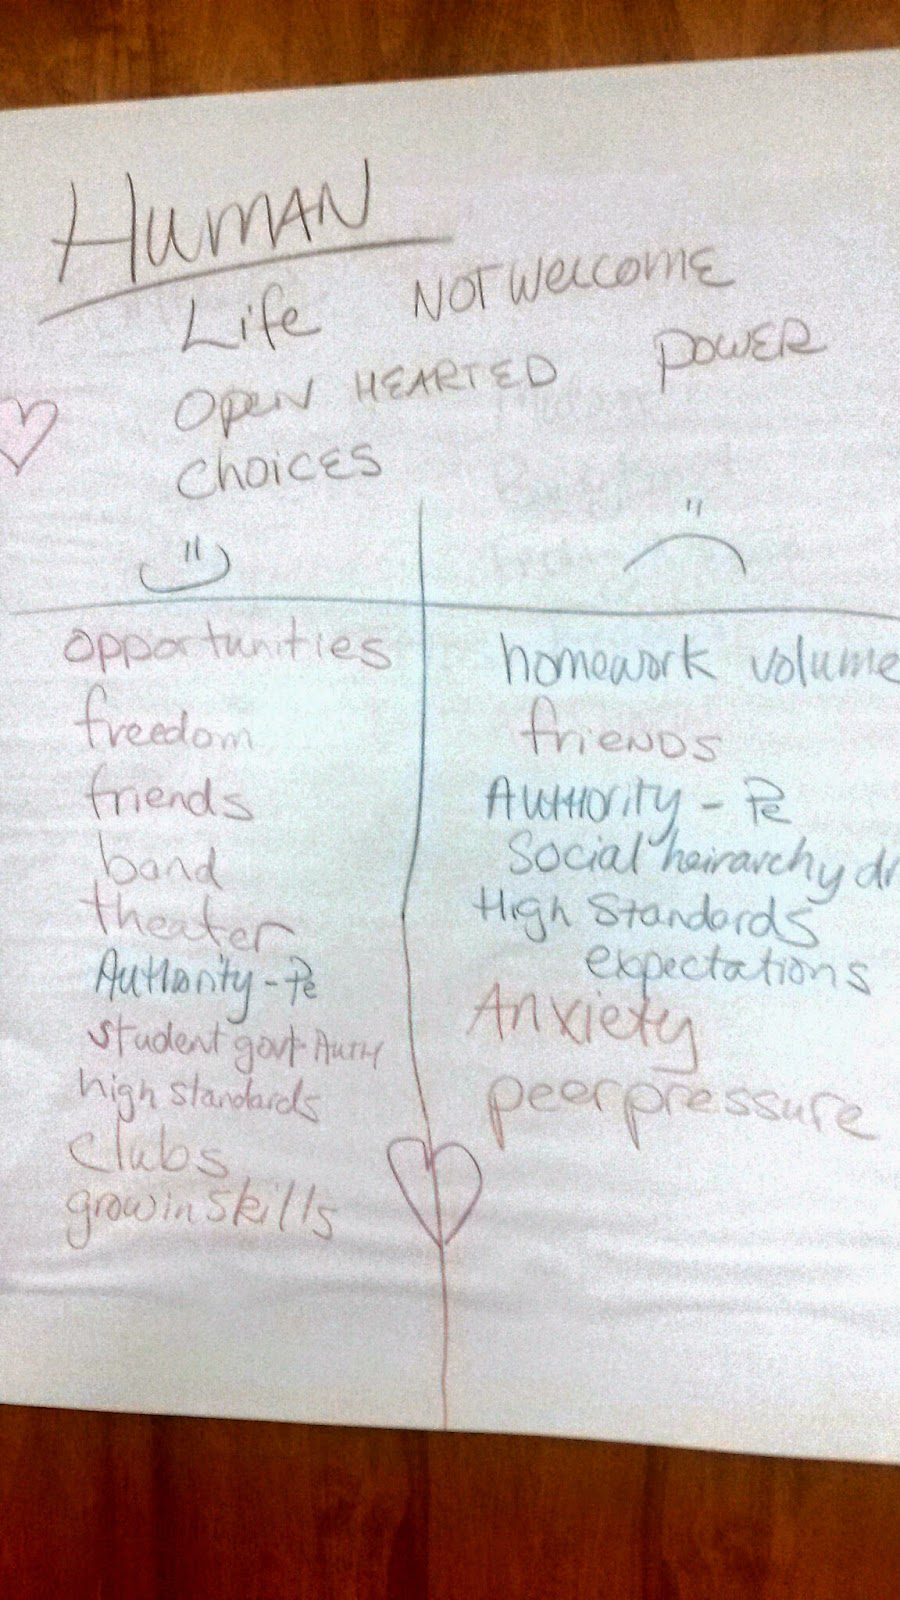 HUMAN
Life NOT WELCOME
OPEN HEARTED POWER
CHOICES
opportunities
freedom
friends
band
theater
Authority - Pe
student govt Auth
high standards
clubs
grow in skills
homework volume
friends
Authority - Pe
Social heirarchy dr
High Standards
expectations
Anxiety
peer pressure